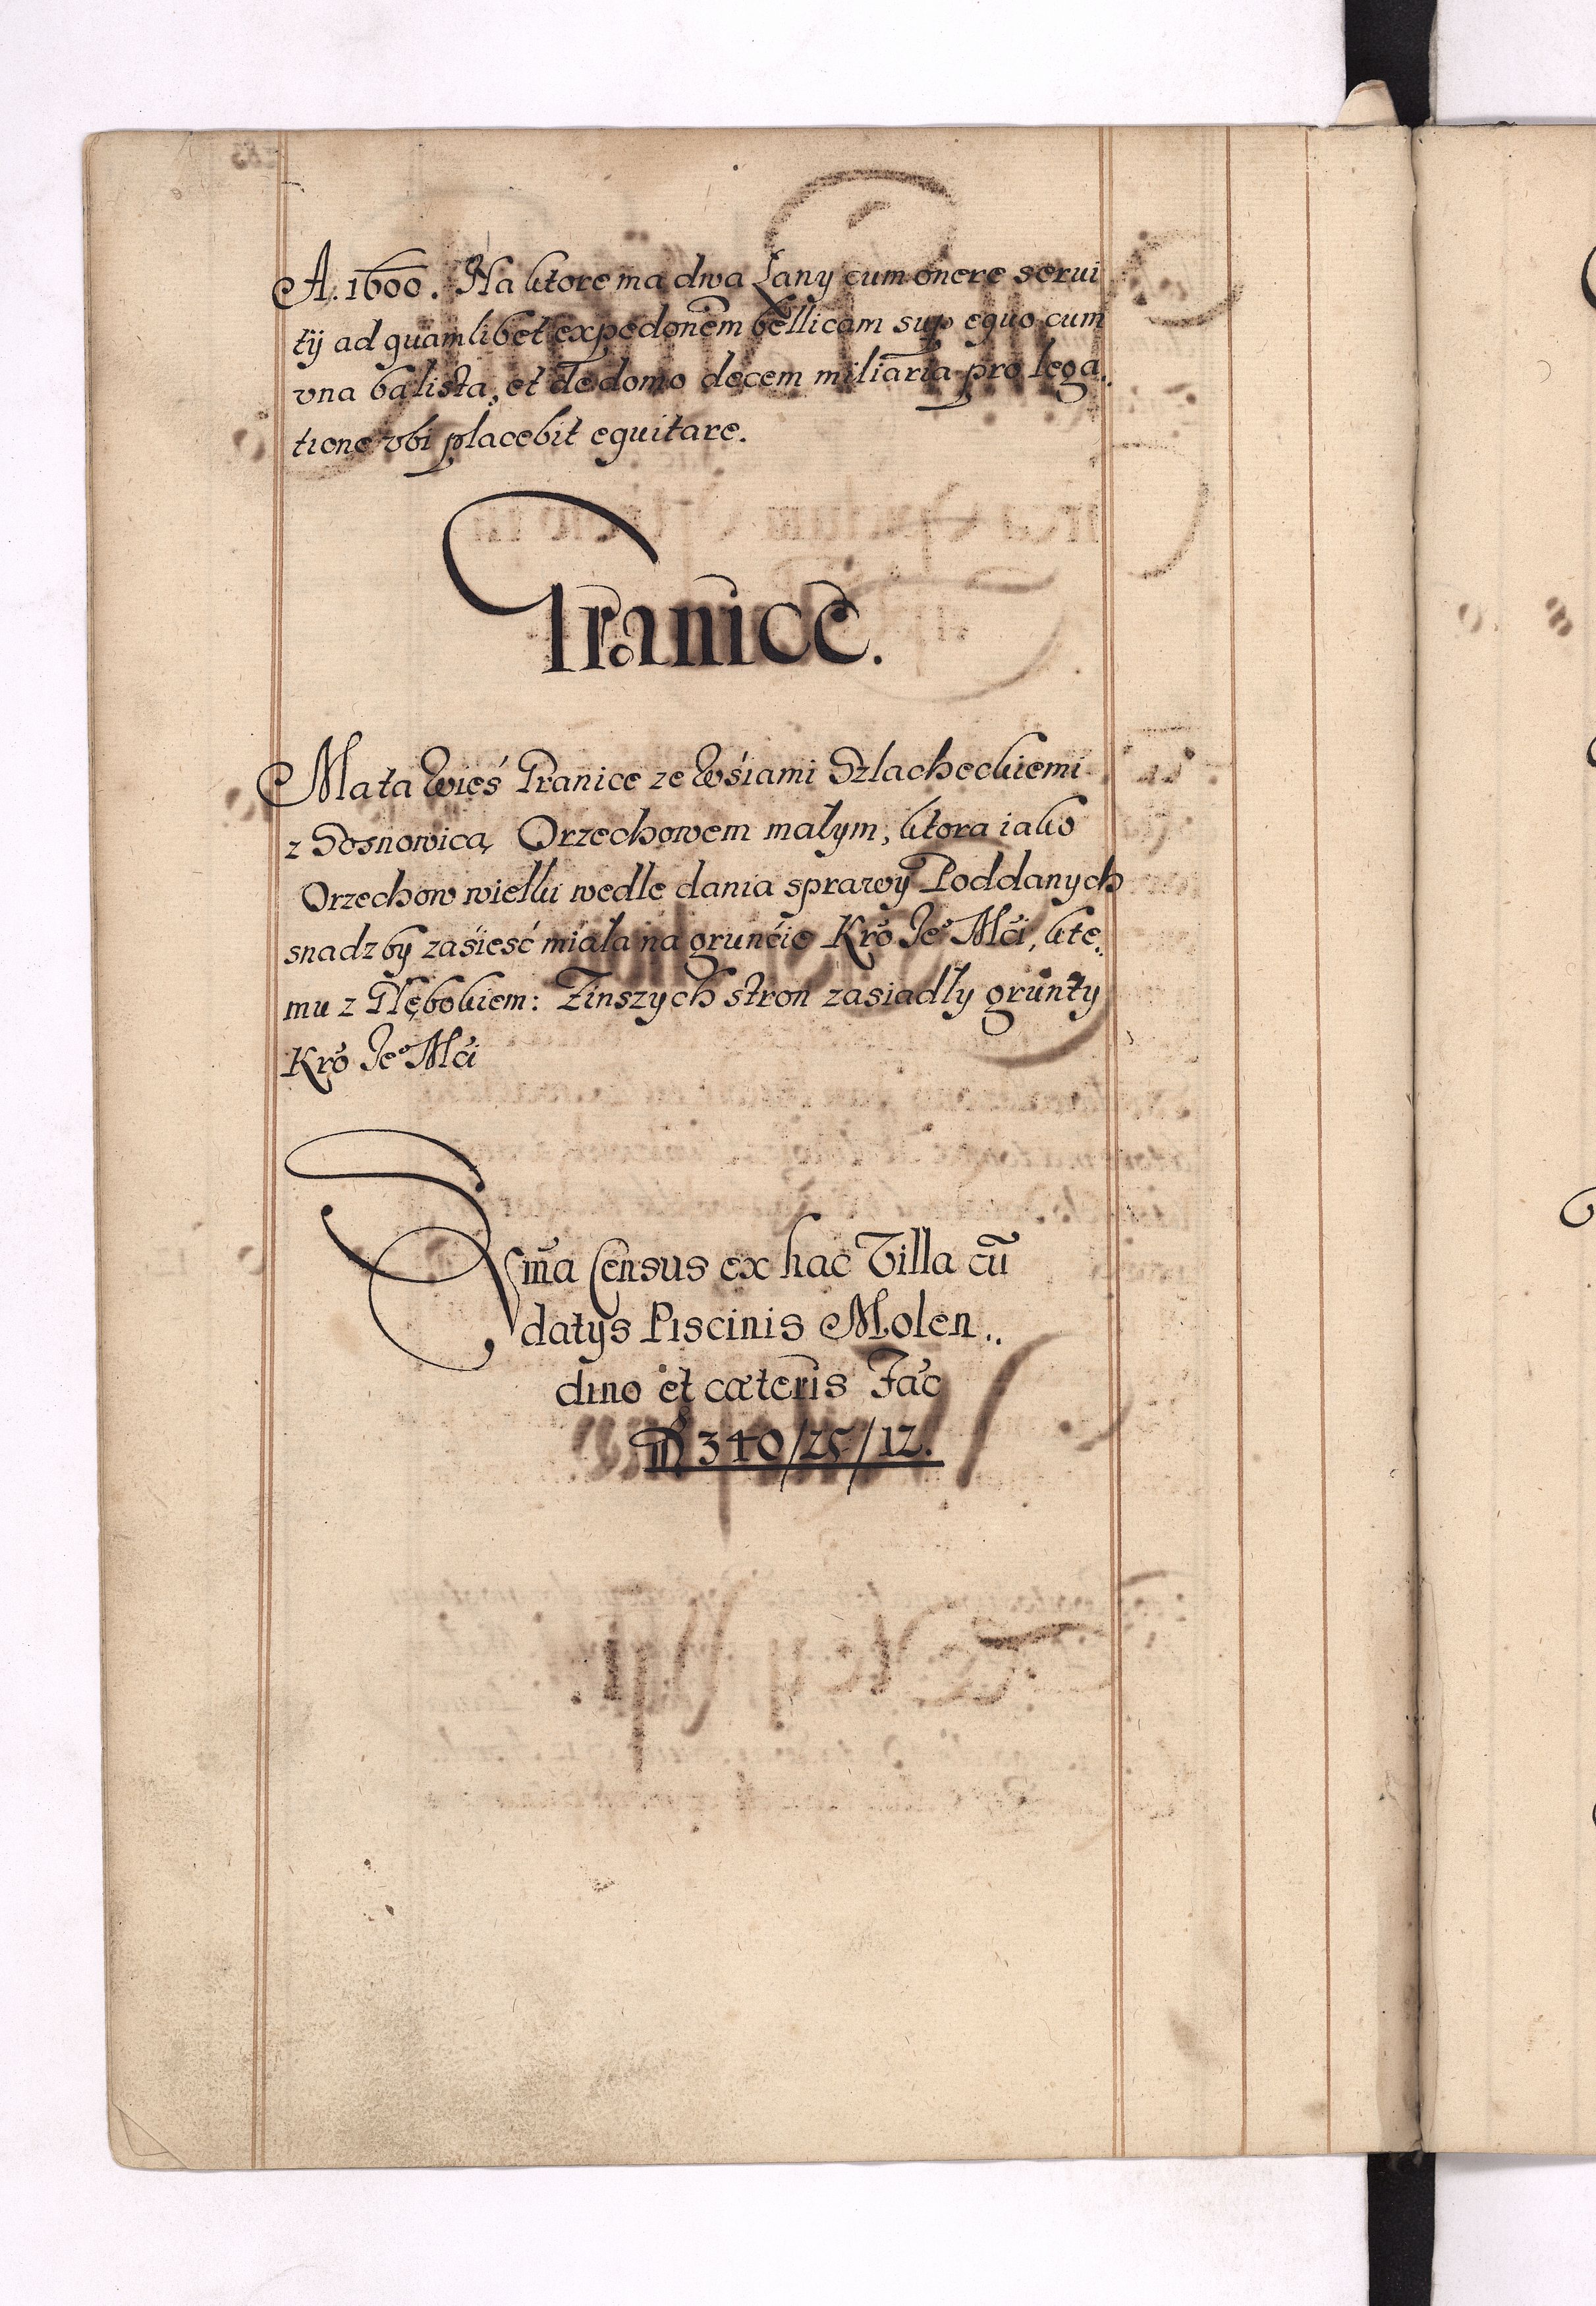 A. 1600. Na ktore ma dwa Łany cum onere serui
tij ad quamlibet expedonem bellicam sup equo cum
vna balista, et de domo decem miliaria pro lega..
tione vbi placebit equitare.
Granice.
Ma ta Wieś Granice ze Wśiami Szlacheckiemi
z Sosnowicą Orzechowem małym, ktora iako
Orzechow wielki wedle dania sprawy Poddanych
snadz by zaśieść miała na grunćie Kro Je° Mći, kte..
mu z Głębokiem: Zinszych stron zasiadły grunty
Kro Je° Mći
Sma Census ex hac Villa cū
datys Piscinis Molen..
dino et cæteris Fac
340/25/12.